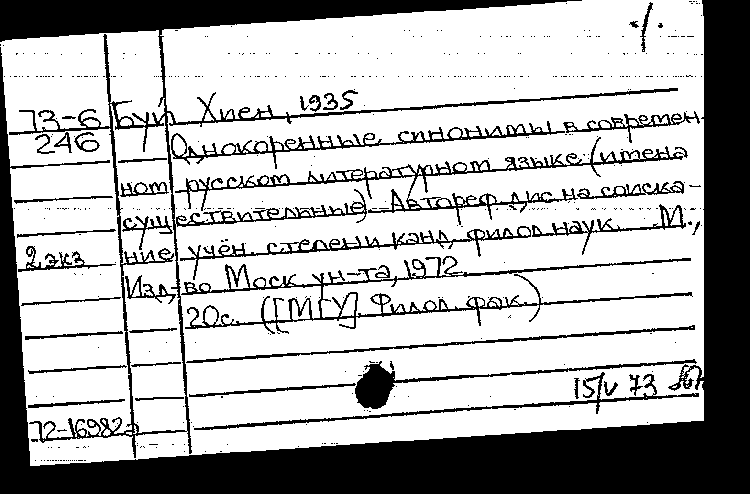 73-6 Буй Хиен, 1935
246 Однокоренные синонимы в современ-
ном русском литературном языке (имена
существительные). Автореф. дис. на соиска-
2 экз ние учён. степени канд. филол. наук. М.,
Изд-во Моск. ун-та, 1972.
20с. ([МГУ]. Филол. фак.)
15/V 73
72-16982а